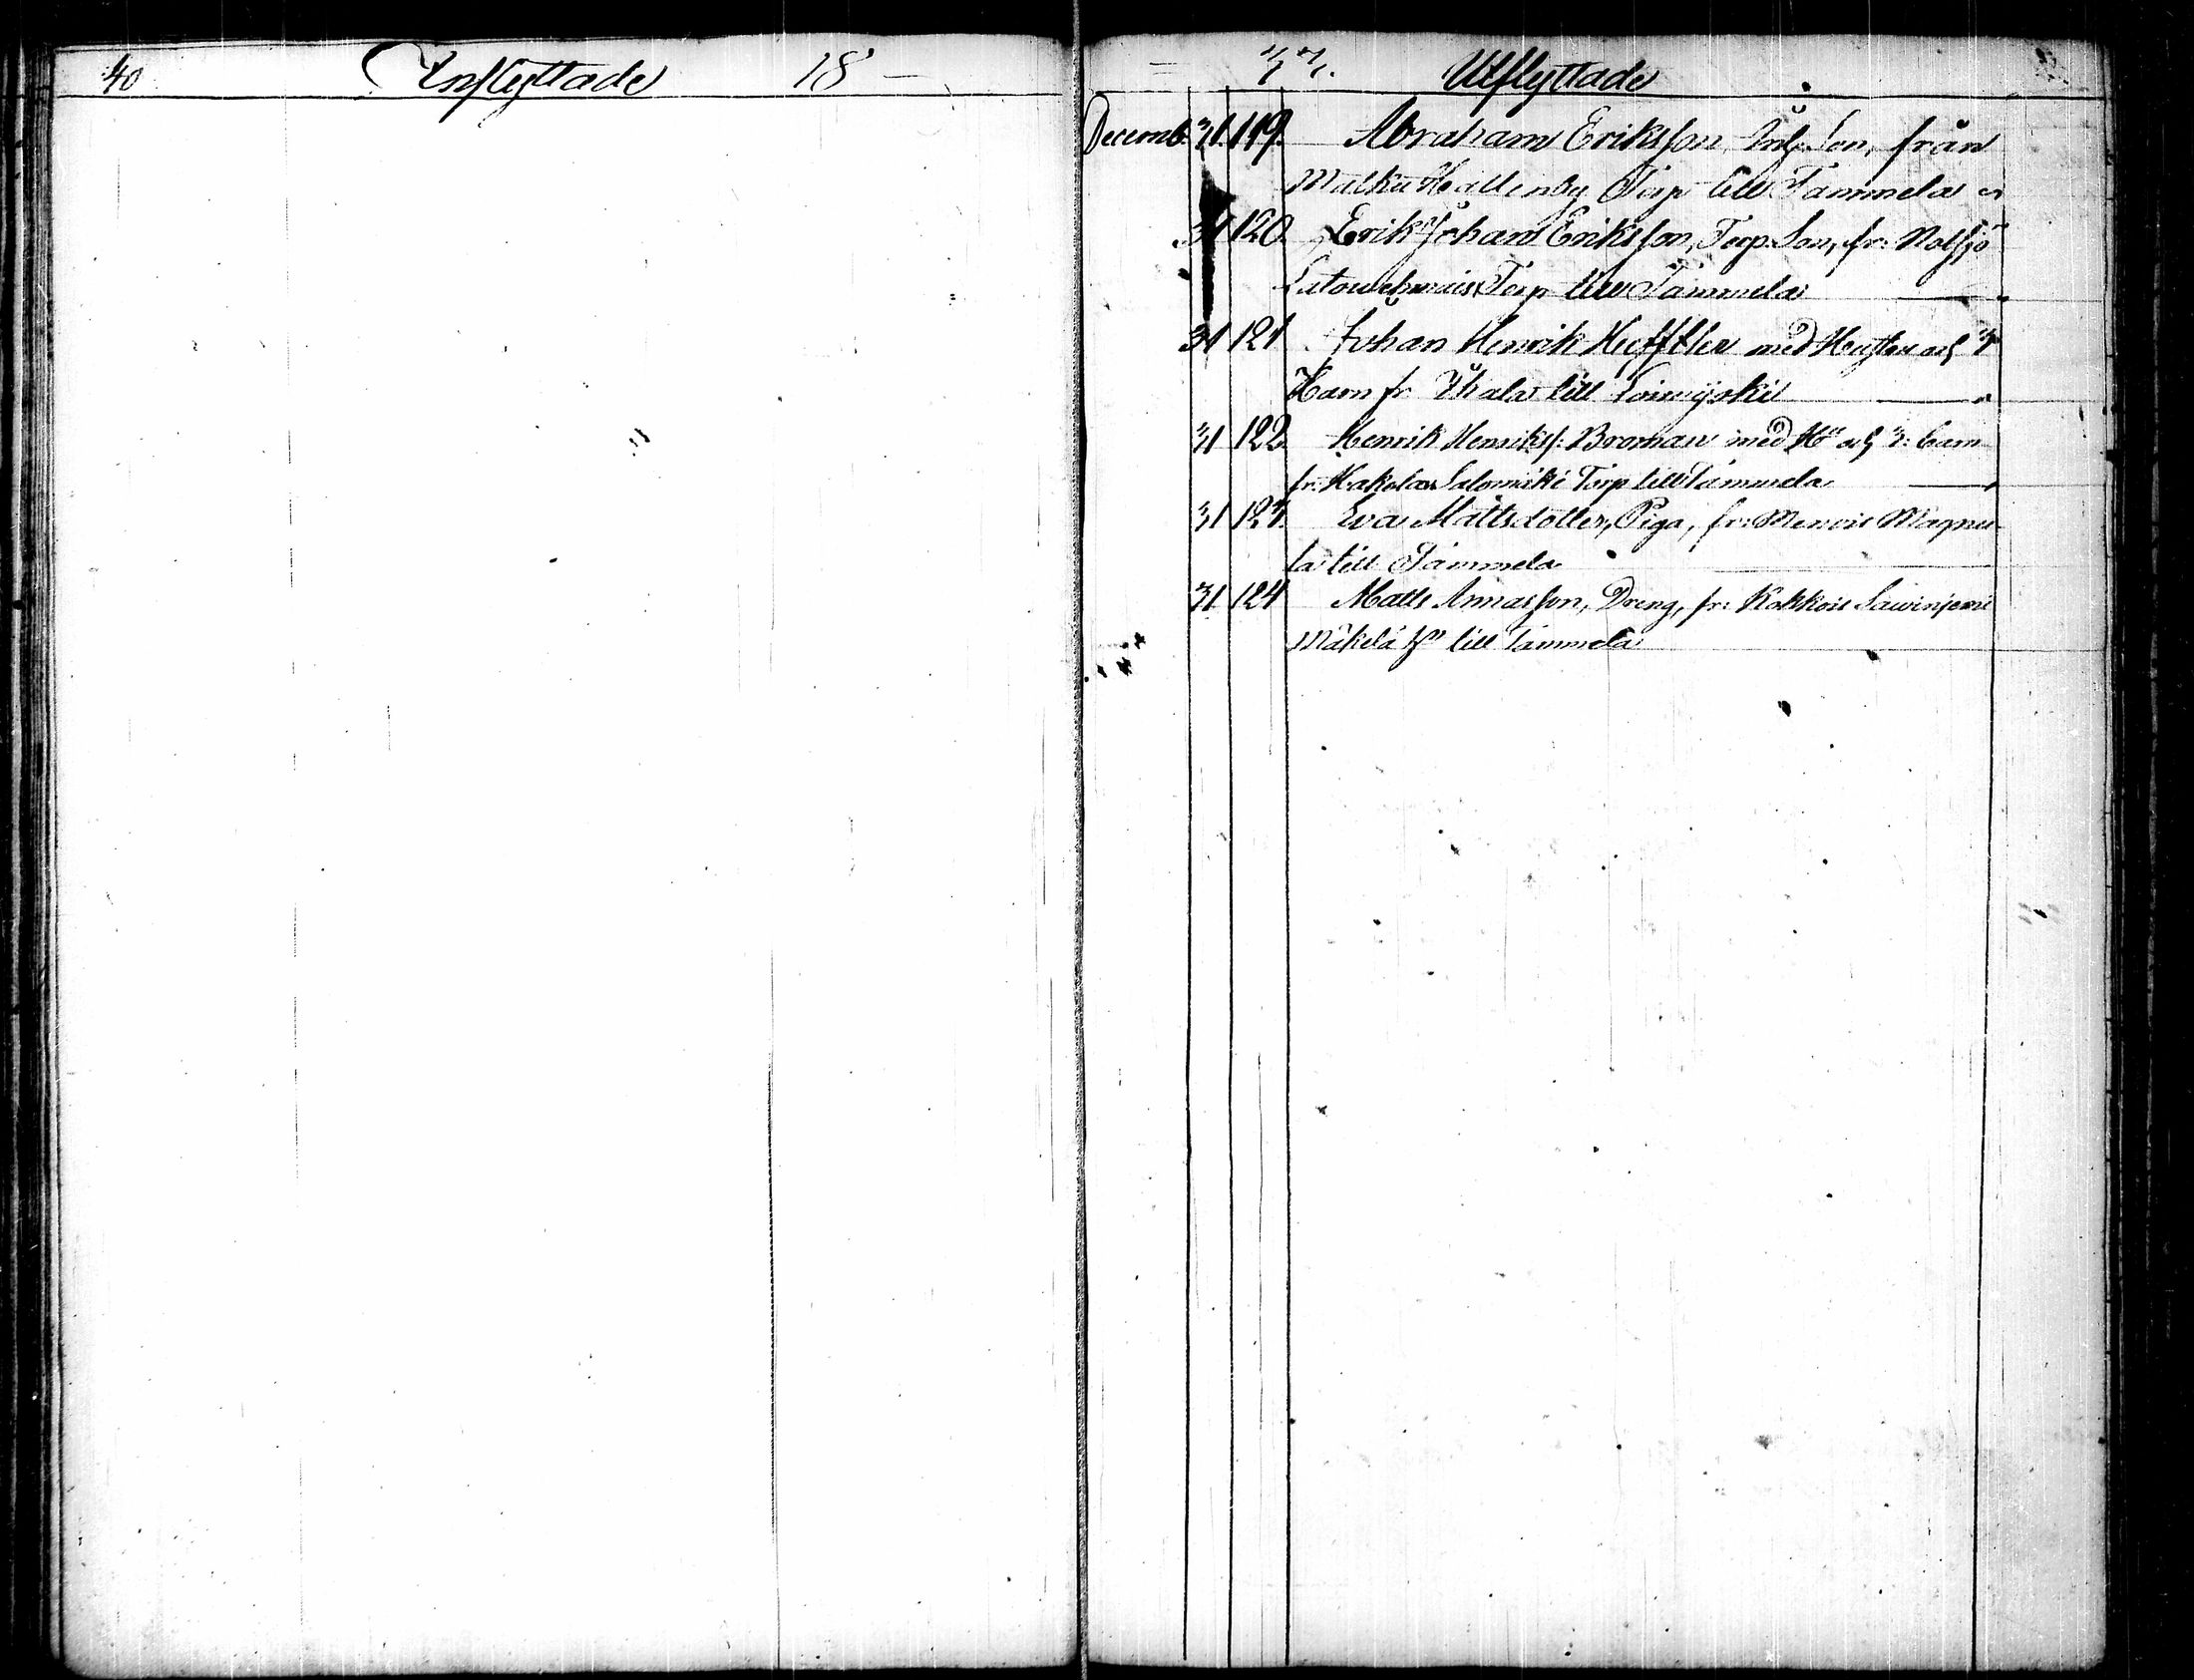 40 Inflyttade 18 —
= 33. Utflyttade
Decemb. 31. 119. Abraham Eriksson, Son, från
Torp till Tammela
31 120. Erik Johan Eriksson, Torp. Son, fr:
Torp till Tammela
31 121 Johan Henrik med Hustru och 3
Barn fr till Loimijoki
31 122. Henrik Henriks: Broman med Hu och 3: barn
fr: Hakola Salomäki Torp till Tammela
31 123. Eva Mattsdotter, Piga, fr: Menois Magnu-
la till Tammela
31 124 Matts Annasson, Dreng, fr: Kokkois Sawinjemi
Mäkelä till Tammela